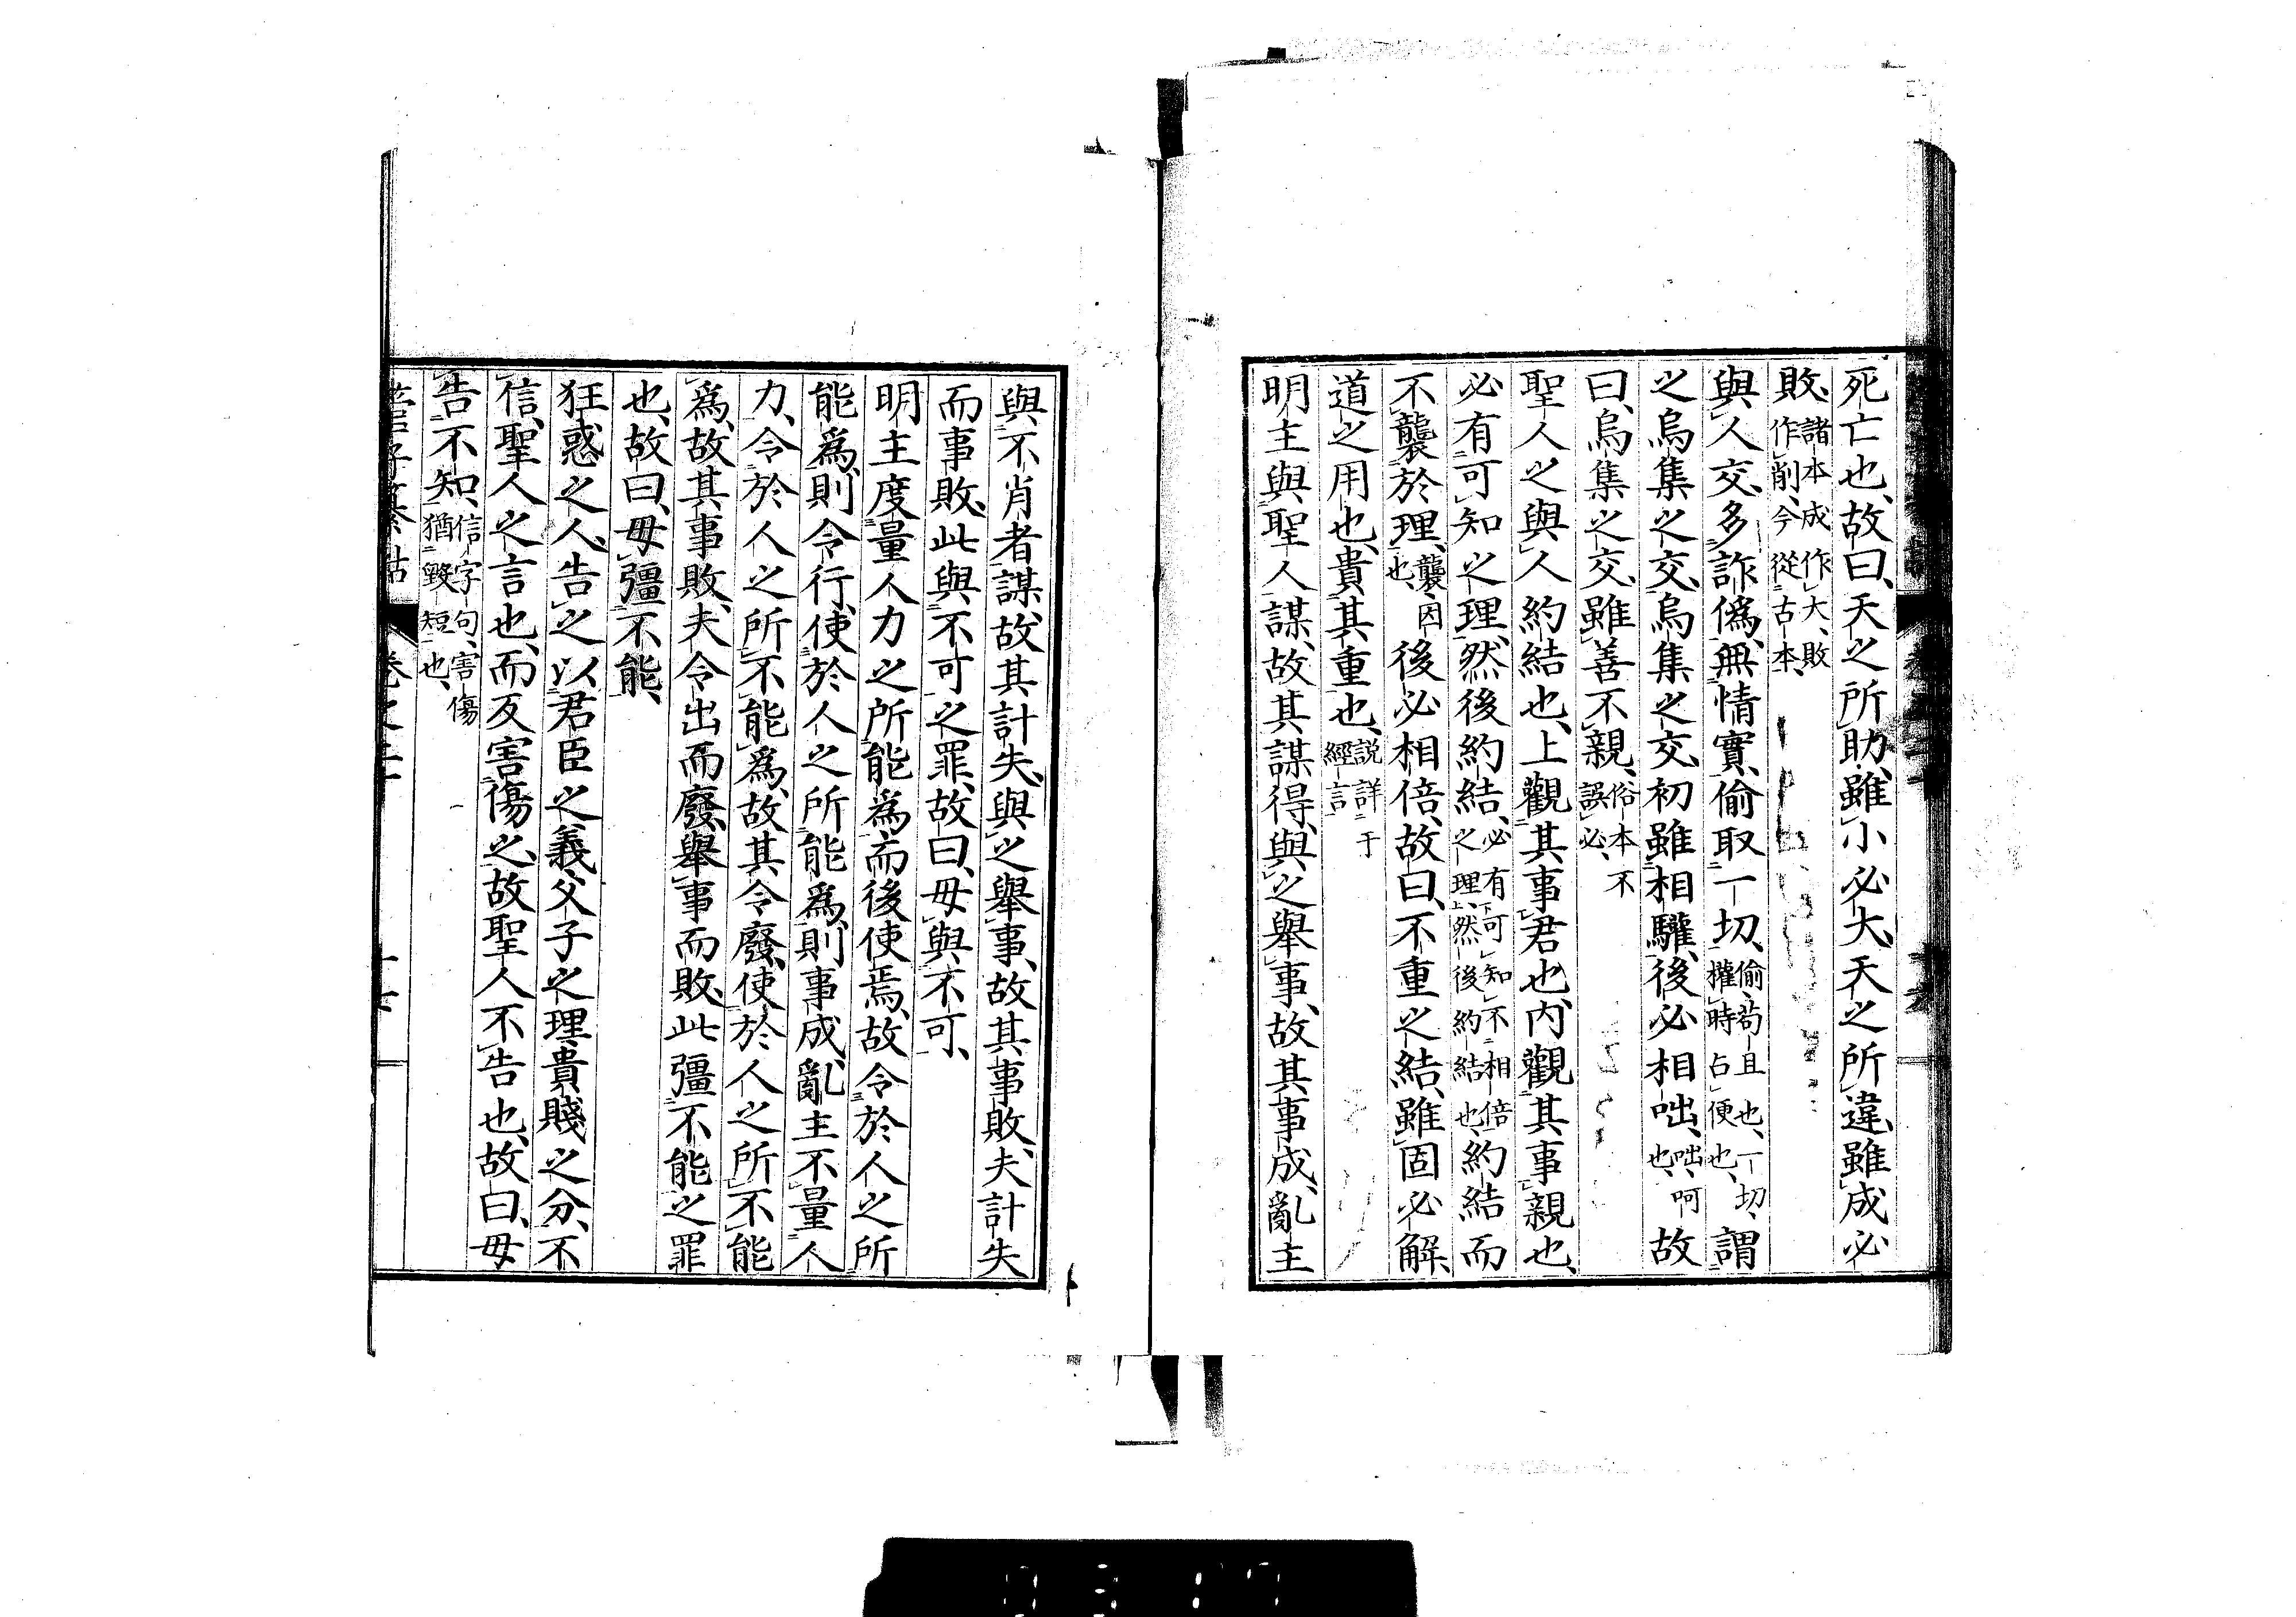 死亡也、故曰、天之所助、雖小必大、天之所違、雖成必
敗、諸本成作大、敗作削、今從古本、
與人交、多詐僞、無情實、偷取一切、偷、苟且也、一切、權時占便也、謂
之烏集之交、烏集之交、初雖相驩、後必相咄、咄、呵也、故
曰、烏集之交、雖善不親、俗本不誤必、
聖人之與人約結也、上觀其事君也、內觀其事親也、
必有可知之理、然後約結、必有可知之理、然後約結也、不相倍約結而
不襲於理、襲、因也、後必相倍、故曰、不重之結、雖固必解、
道之用也、貴其重也、説詳于經言
明主與聖人謀、故其謀得、與之舉事、故其事成、亂主
與不肖者謀、故其計失、與之舉事、故其事敗、夫計失
而事敗、此與不可之罪、故曰、毋與不可、
明主度量人力之所能爲、而後使焉、故令於人之所
能爲、則令行、使於人之所能爲、則事成、亂主不量人
力、令於人之所不能爲、故其令廢、使於人之所不能
爲、故其事敗、夫令出而廢、舉事而敗、此彊不能之罪
也、故曰、毋彊不能、
狂惑之人、告之以君臣之義父子之理貴賤之分、不
信、聖人之言也、而反害傷之、故聖人不告也、故曰、毋
告不知、信字句、害傷猶毀短也、